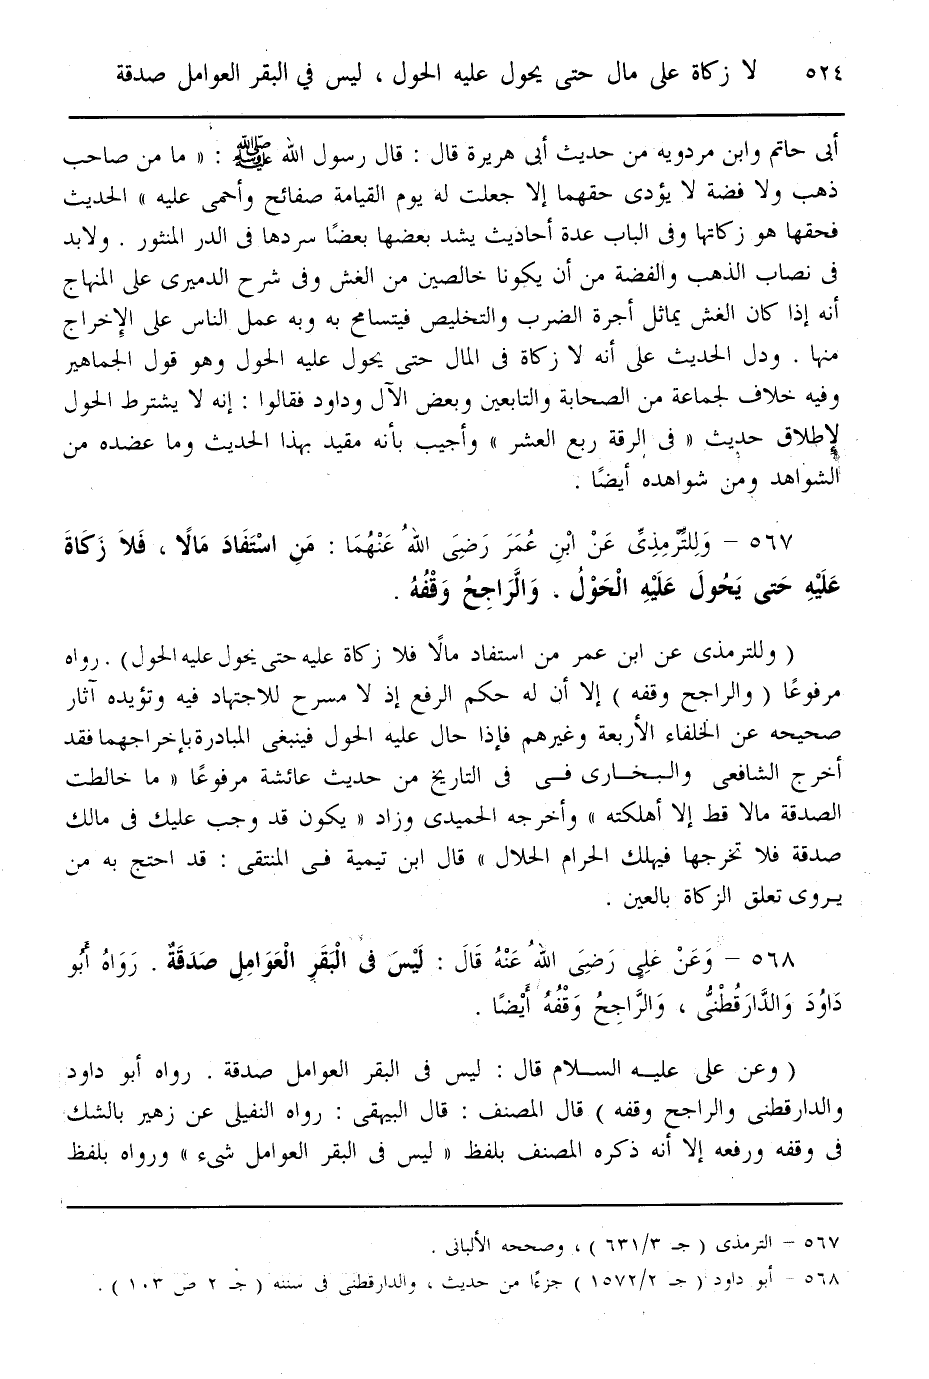 ٥٢٤ لا زكاة على مال حتى يحول عليه الحول ، ليس في البقر العوامل صدقة
أبى حاتم وابن مردويه من حديث أبى هريرة قال : قال رسول الله ﷺ : « ما من صاحب
ذهب ولا فضة لا يؤدى حقهما إلا جعلت له يوم القيامة صفائح وأحمى عليه » الحديث
فحقها هو زكاتها وفى الباب عدة أحاديث يشد بعضها بعضًا سردها فى الدر المنثور . ولابد
فى نصاب الذهب والفضة من أن يكونا خالصين من الغش وفى شرح الدميرى على المنهاج
أنه إذا كان الغش يماثل أجرة الضرب والتخليص فيتسامح به وبه عمل الناس على الإخراج
منها . ودل الحديث على أنه لا زكاة فى المال حتى يحول عليه الحول وهو قول الجماهير
وفيه خلاف لجماعة من الصحابة والتابعين وبعض الآل وداود فقالوا : إنه لا يشترط الحول
لإطلاق حديث « فى الرقة ربع العشر » وأجيب بأنه مقيد بهذا الحديث وما عضده من
الشواهد ومن شواهده أيضًا .
٥٦٧ – وَللتِّرمِذِىِّ عَنْ ابْنِ عُمَرَ رَضِىَ اللهُ عَنْهُمَا : مَنِ اسْتَفَادَ مَالًا ، فَلاَ زَكَاةَ
عَلَيْهِ حَتى يَحُولَ عَلَيْهِ الْحَوْلُ . وَالَّراجِحُ وَقْفُهُ .
( وللترمذى عن ابن عمر من استفاد مالًا فلا زكاة عليه حتى يحول عليه الحول ) . رواه
مرفوعًا ( والراجح وقفه ) إلا أن له حكم الرفع إذ لا مسرح للاجتهاد فيه وتؤيده آثار
صحيحه عن الخلفاء الأربعة وغيرهم فإذا حال عليه الحول فينبغى المبادرة بإخراجهما فقد
أخرج الشافعى والبخارى فى فى التاريخ من حديث عائشة مرفوعًا « ما خالطت
الصدقة مالا قط إلا أهلكته » وأخرجه الحميدى وزاد « يكون قد وجب عليك فى مالك
صدقة فلا تخرجها فيهلك الحرام الحلال » قال ابن تيمية فى المنتقى : قد احتج به من
يروى تعلق الزكاة بالعين .
٥٦٨ – وَعَنْ عَلِى رَضِىَ اللهُ عَنْهُ قَالَ : لَيْسَ فى الْبَقَرِ الْعَوَامِلِ صَدَقَةٌ . رَوَاهُ أَبُو
دَاوُدَ وَالدَّارَقُطْنىُّ ، وَالرَّاجحُ وَقْفُهُ أَيْضًا .
( وعن على عليه السلام قال : ليس فى البقر العوامل صدقة . رواه أبو داود
والدارقطنى والراجح وقفه ) قال المصنف : قال البيهقى : رواه النفيلى عن زهير بالشك
فى وقفه ورفعه إلا أنه ذكره المصنف بلفظ « ليس فى البقر العوامل شىء » ورواه بلفظ
٥٦٧ – الترمذى ( جـ ٦٣١/٣ ) ، وصححه الألبانى .
٥٦٨ – أبو داود ( جـ ١٥٧٢/٢ ) جزءًا من حديث ، والدارقطنى فى سننه ( جـ ٢ ص ١٠٣ ) .